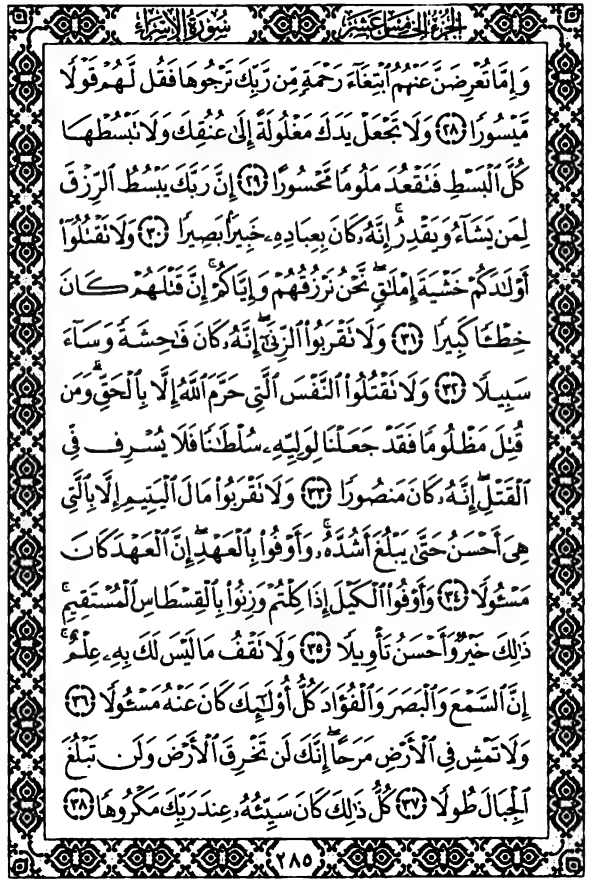 سُورَةُ الإِسْرَاءِ الجُزْءُ الخَامِسَ عَشَرَ
وَإِمَّا تُعْرِضَنَّ عَنْهُمُ ٱبْتِغَآءَ رَحْمَةٍ مِّن رَّبِّكَ تَرْجُوهَا فَقُل لَّهُمْ قَوْلًا
مَّيْسُورًا ٢٨ وَلَا تَجْعَلْ يَدَكَ مَغْلُولَةً إِلَىٰ عُنُقِكَ وَلَا تَبْسُطْهَا
كُلَّ ٱلْبَسْطِ فَتَقْعُدَ مَلُومًا مَّحْسُورًا ٢٩ إِنَّ رَبَّكَ يَبْسُطُ ٱلرِّزْقَ
لِمَن يَشَآءُ وَيَقْدِرُ ۚ إِنَّهُۥ كَانَ بِعِبَادِهِۦ خَبِيرًۢا بَصِيرًا ٣٠ وَلَا تَقْتُلُوٓا۟
أَوْلَـٰدَكُمْ خَشْيَةَ إِمْلَـٰقٍ ۖ نَّحْنُ نَرْزُقُهُمْ وَإِيَّاكُمْ ۚ إِنَّ قَتْلَهُمْ كَانَ
خِطْـًٔا كَبِيرًا ٣١ وَلَا تَقْرَبُوا۟ ٱلزِّنَىٰٓ ۖ إِنَّهُۥ كَانَ فَـٰحِشَةً وَسَآءَ
سَبِيلًا ٣٢ وَلَا تَقْتُلُوا۟ ٱلنَّفْسَ ٱلَّتِى حَرَّمَ ٱللَّهُ إِلَّا بِٱلْحَقِّ ۗ وَمَن
قُتِلَ مَظْلُومًا فَقَدْ جَعَلْنَا لِوَلِيِّهِۦ سُلْطَـٰنًا فَلَا يُسْرِف فِّى
ٱلْقَتْلِ ۖ إِنَّهُۥ كَانَ مَنصُورًا ٣٣ وَلَا تَقْرَبُوا۟ مَالَ ٱلْيَتِيمِ إِلَّا بِٱلَّتِى
هِىَ أَحْسَنُ حَتَّىٰ يَبْلُغَ أَشُدَّهُۥ ۚ وَأَوْفُوا۟ بِٱلْعَهْدِ ۖ إِنَّ ٱلْعَهْدَ كَانَ
مَسْـُٔولًا ٣٤ وَأَوْفُوا۟ ٱلْكَيْلَ إِذَا كِلْتُمْ وَزِنُوا۟ بِٱلْقِسْطَاسِ ٱلْمُسْتَقِيمِ ۚ
ذَٰلِكَ خَيْرٌ وَأَحْسَنُ تَأْوِيلًا ٣٥ وَلَا تَقْفُ مَا لَيْسَ لَكَ بِهِۦ عِلْمٌ ۚ
إِنَّ ٱلسَّمْعَ وَٱلْبَصَرَ وَٱلْفُؤَادَ كُلُّ أُو۟لَـٰٓئِكَ كَانَ عَنْهُ مَسْـُٔولًا ٣٦
وَلَا تَمْشِ فِى ٱلْأَرْضِ مَرَحًا ۖ إِنَّكَ لَن تَخْرِقَ ٱلْأَرْضَ وَلَن تَبْلُغَ
ٱلْجِبَالَ طُولًا ٣٧ كُلُّ ذَٰلِكَ كَانَ سَيِّئُهُۥ عِندَ رَبِّكَ مَكْرُوهًا ٣٨
٢٨٥